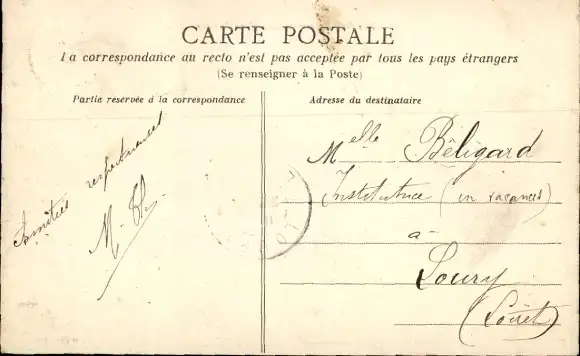 CARTE POSTALE
La correspondance au recto n'est pas acceptée par tous les pays étrangers
(Se renseigner à la Poste)
Partie réservée à la correspondance
Adresse du destinataire
Amitiés
M.
Melle Béligard
Institutrice (en vacances)
à
Loury
(Loiret)